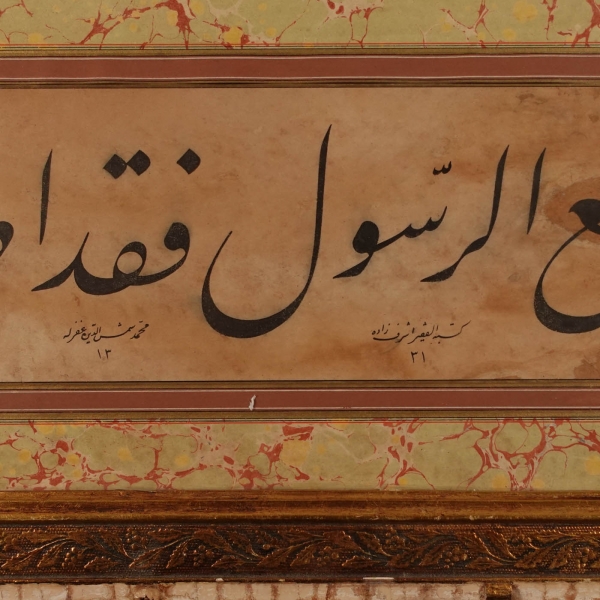 ع الرّسول فقد ا
كتبه الفقير اشرف زاده
٣١
محمد شمس الدین غفر له
١٣